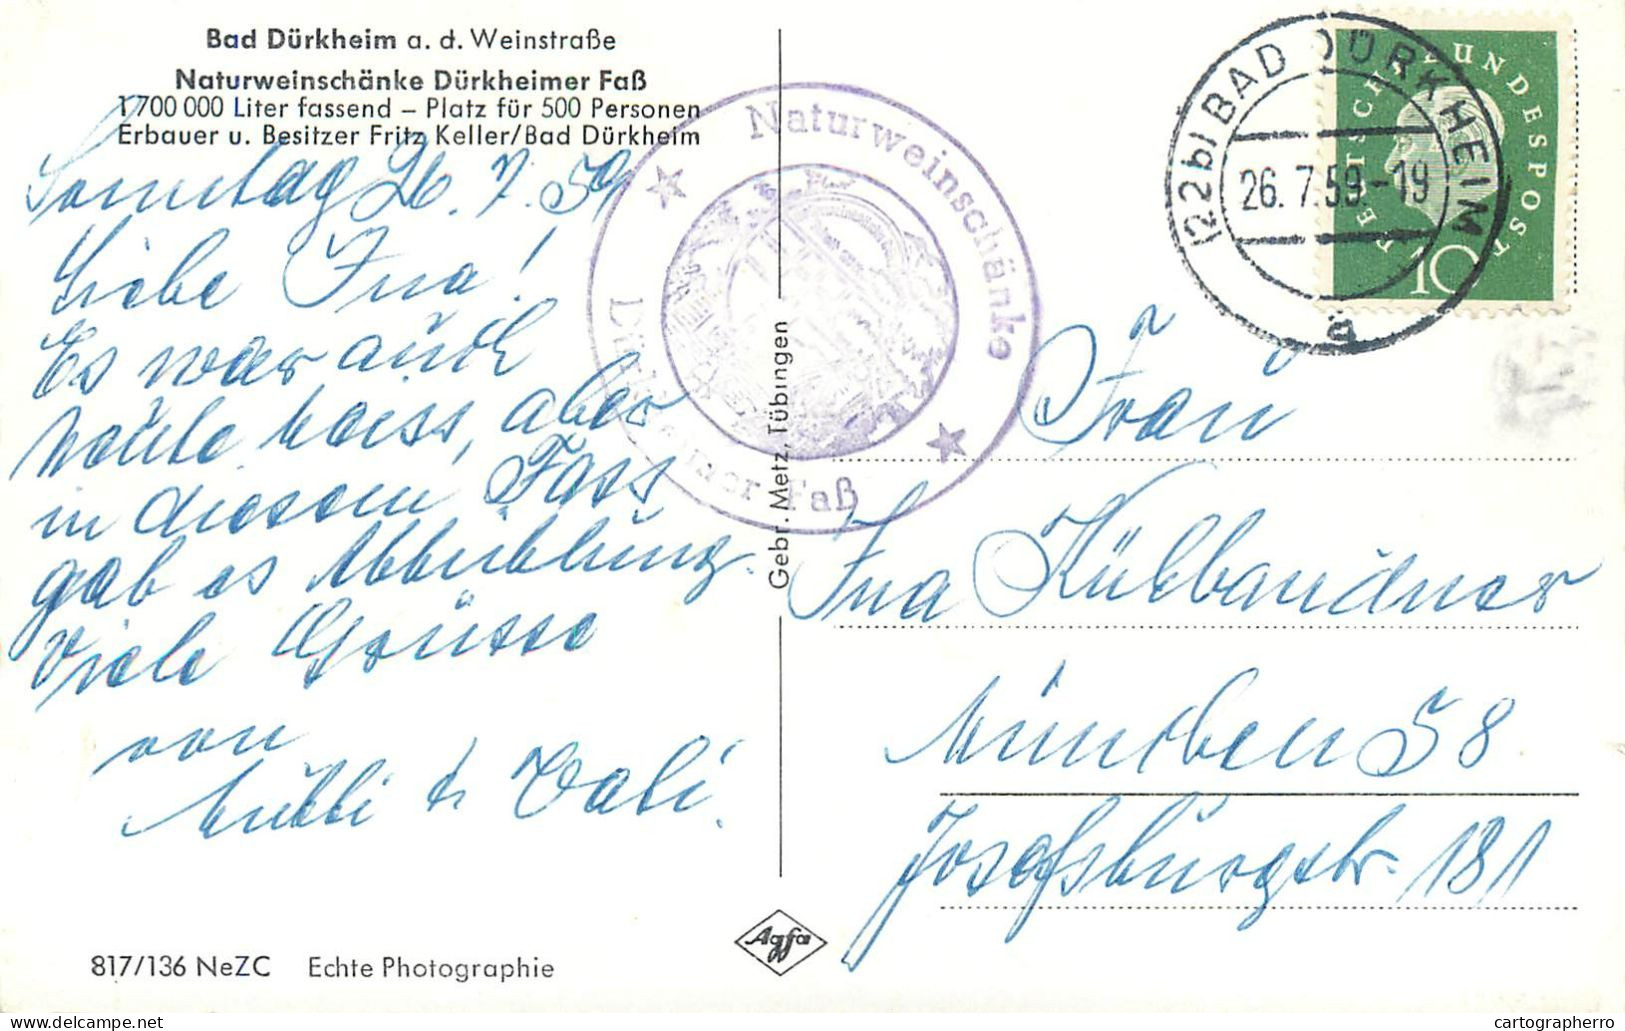 Bad Dürkheim a. d. Weinstraße
Naturweinschänke Dürkheimer Faß
1 700 000 Liter fassend – Platz für 500 Personen
Erbauer u. Besitzer Fritz Keller/Bad Dürkheim
Sonntag 26. 7. 59
Liebe Ina!
Es war auch
heute heiss, aber
in diesem Fass
gab es Abkühlung.
Viele Grüsse
von
& Vali.
817/136 NeZC Echte Photographie
Agfa
Gebr. Metz, Tübingen
Naturweinschänke
Dürkheimer Faß
(22b) BAD DÜRKHEIM
26. 7. 59.-19
a
DEUTSCHE BUNDESPOST
10
Frau
Ina Küllbandner
München 58
Josefsburgstr. 131
cartographerro
delcampe.net